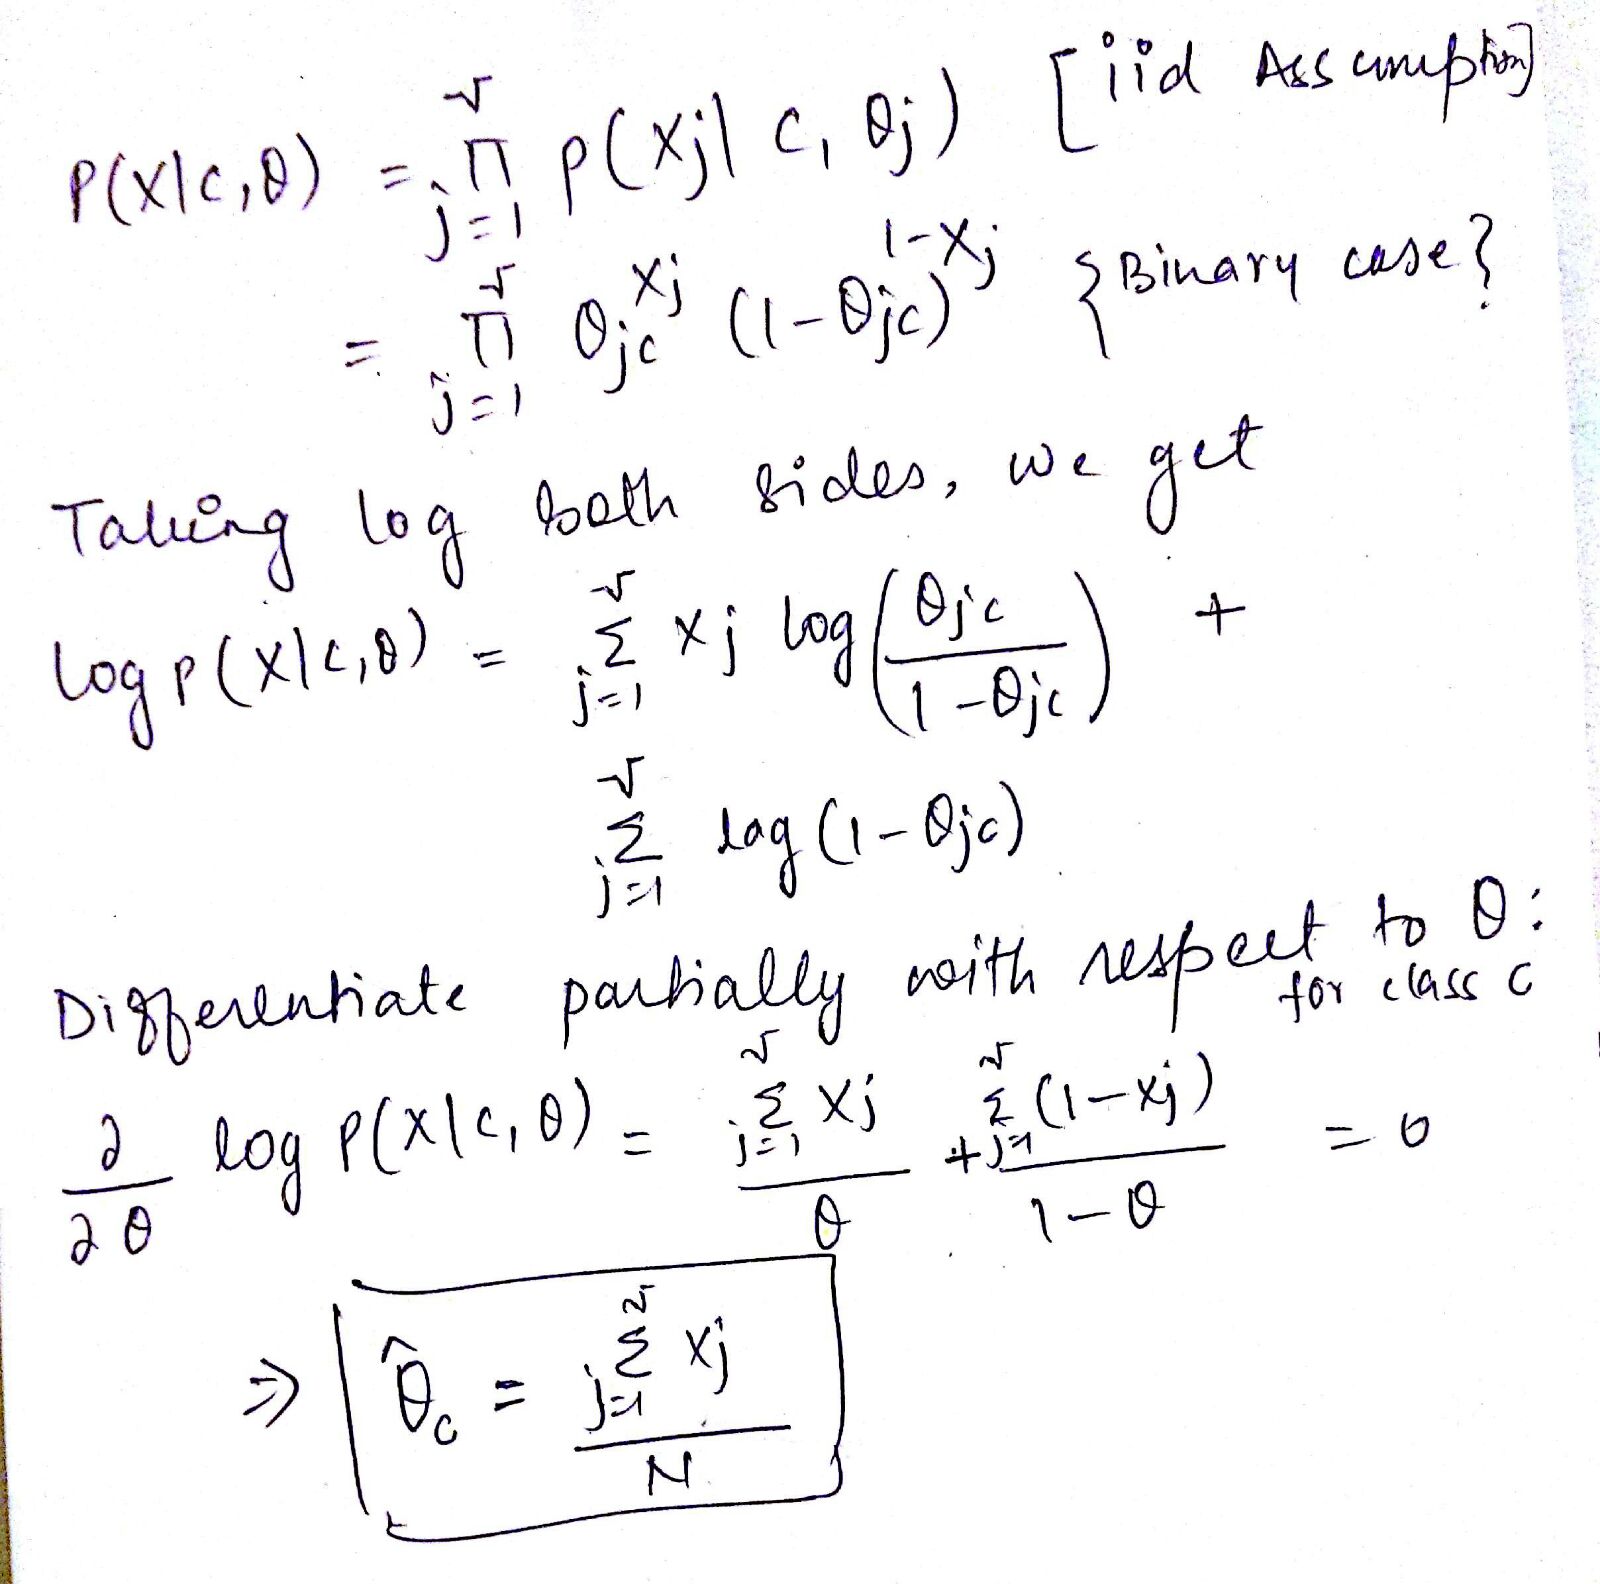 P(X|c,θ) = ∏_{j=1}^{v} p(Xj| c, θj) [iid Assumption]
= ∏_{j=1}^{v} θjc^{Xj} (1-θjc)^{1-Xj} {Binary case}
Taking log both sides, we get
log p(X|c,θ) = ∑_{j=1}^{v} Xj log(θjc / (1-θjc)) +
∑_{j=1}^{v} log(1-θjc)
Differentiate partially with respect to θ:
for class c
∂/∂θ log P(X|c,θ) = (∑_{j=1}^{v} Xj)/θ + (∑_{j=1}^{v} (1-Xj))/(1-θ) = 0
⇒ θ̂c = (∑_{j=1}^{v} Xj)/N